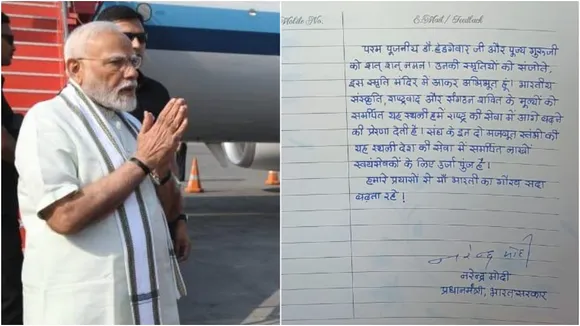 Mobile No.
E.Mail / Feedback
परम पूजनीय डॉ. हेडगेवार जी और पूज्य गुरुजी
को शत् शत् नमन। उनकी स्मृतियों को संजोते,
इस स्मृति मंदिर में आकर अभिभूत हूं। भारतीय
संस्कृति, राष्ट्रवाद और संगठन शक्ति के मूल्यों को
समर्पित यह स्थली हमें राष्ट्र की सेवा में आगे बढ़ने
की प्रेरणा देती है। संघ के इन दो मजबूत स्तंभों की
यह स्थली देश की सेवा में समर्पित लाखों
स्वयंसेवकों के लिए ऊर्जा पुंज है।
हमारे प्रयासों से माँ भारती का गौरव सदा
बढ़ता रहे!
नरेन्द्र मोदी
नरेन्द्र मोदी
प्रधानमंत्री, भारत सरकार